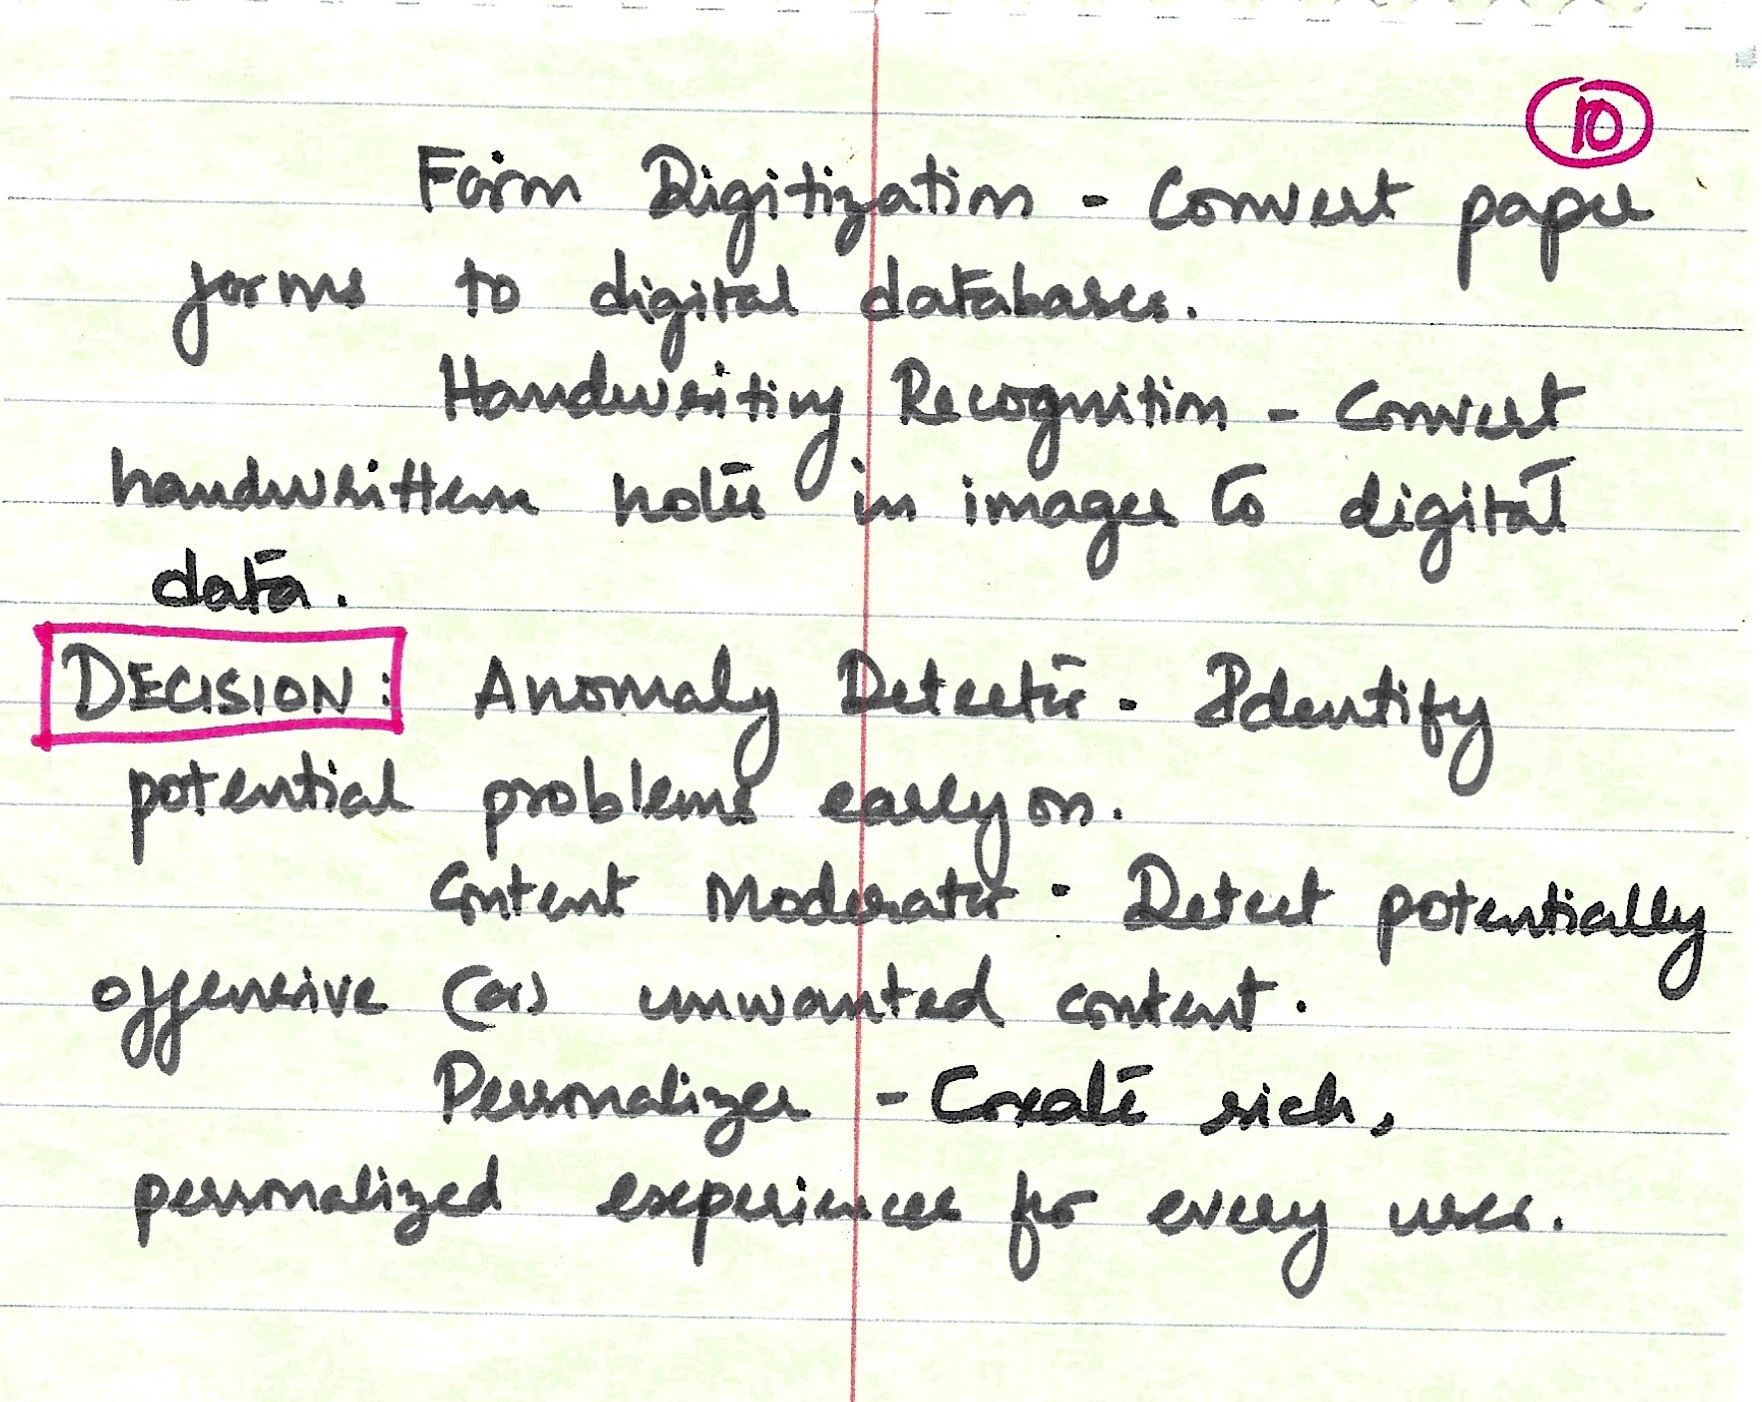 10
Form Digitization - Convert paper
forms to digital databases.
Handwriting Recognition - Convert
handwritten notes in images to digital
data.
DECISION: Anomaly Detector - Identify
potential problems early on.
Content Moderator - Detect potentially
offensive (or) unwanted content.
Personalizer - Create rich,
personalized experiences for every user.